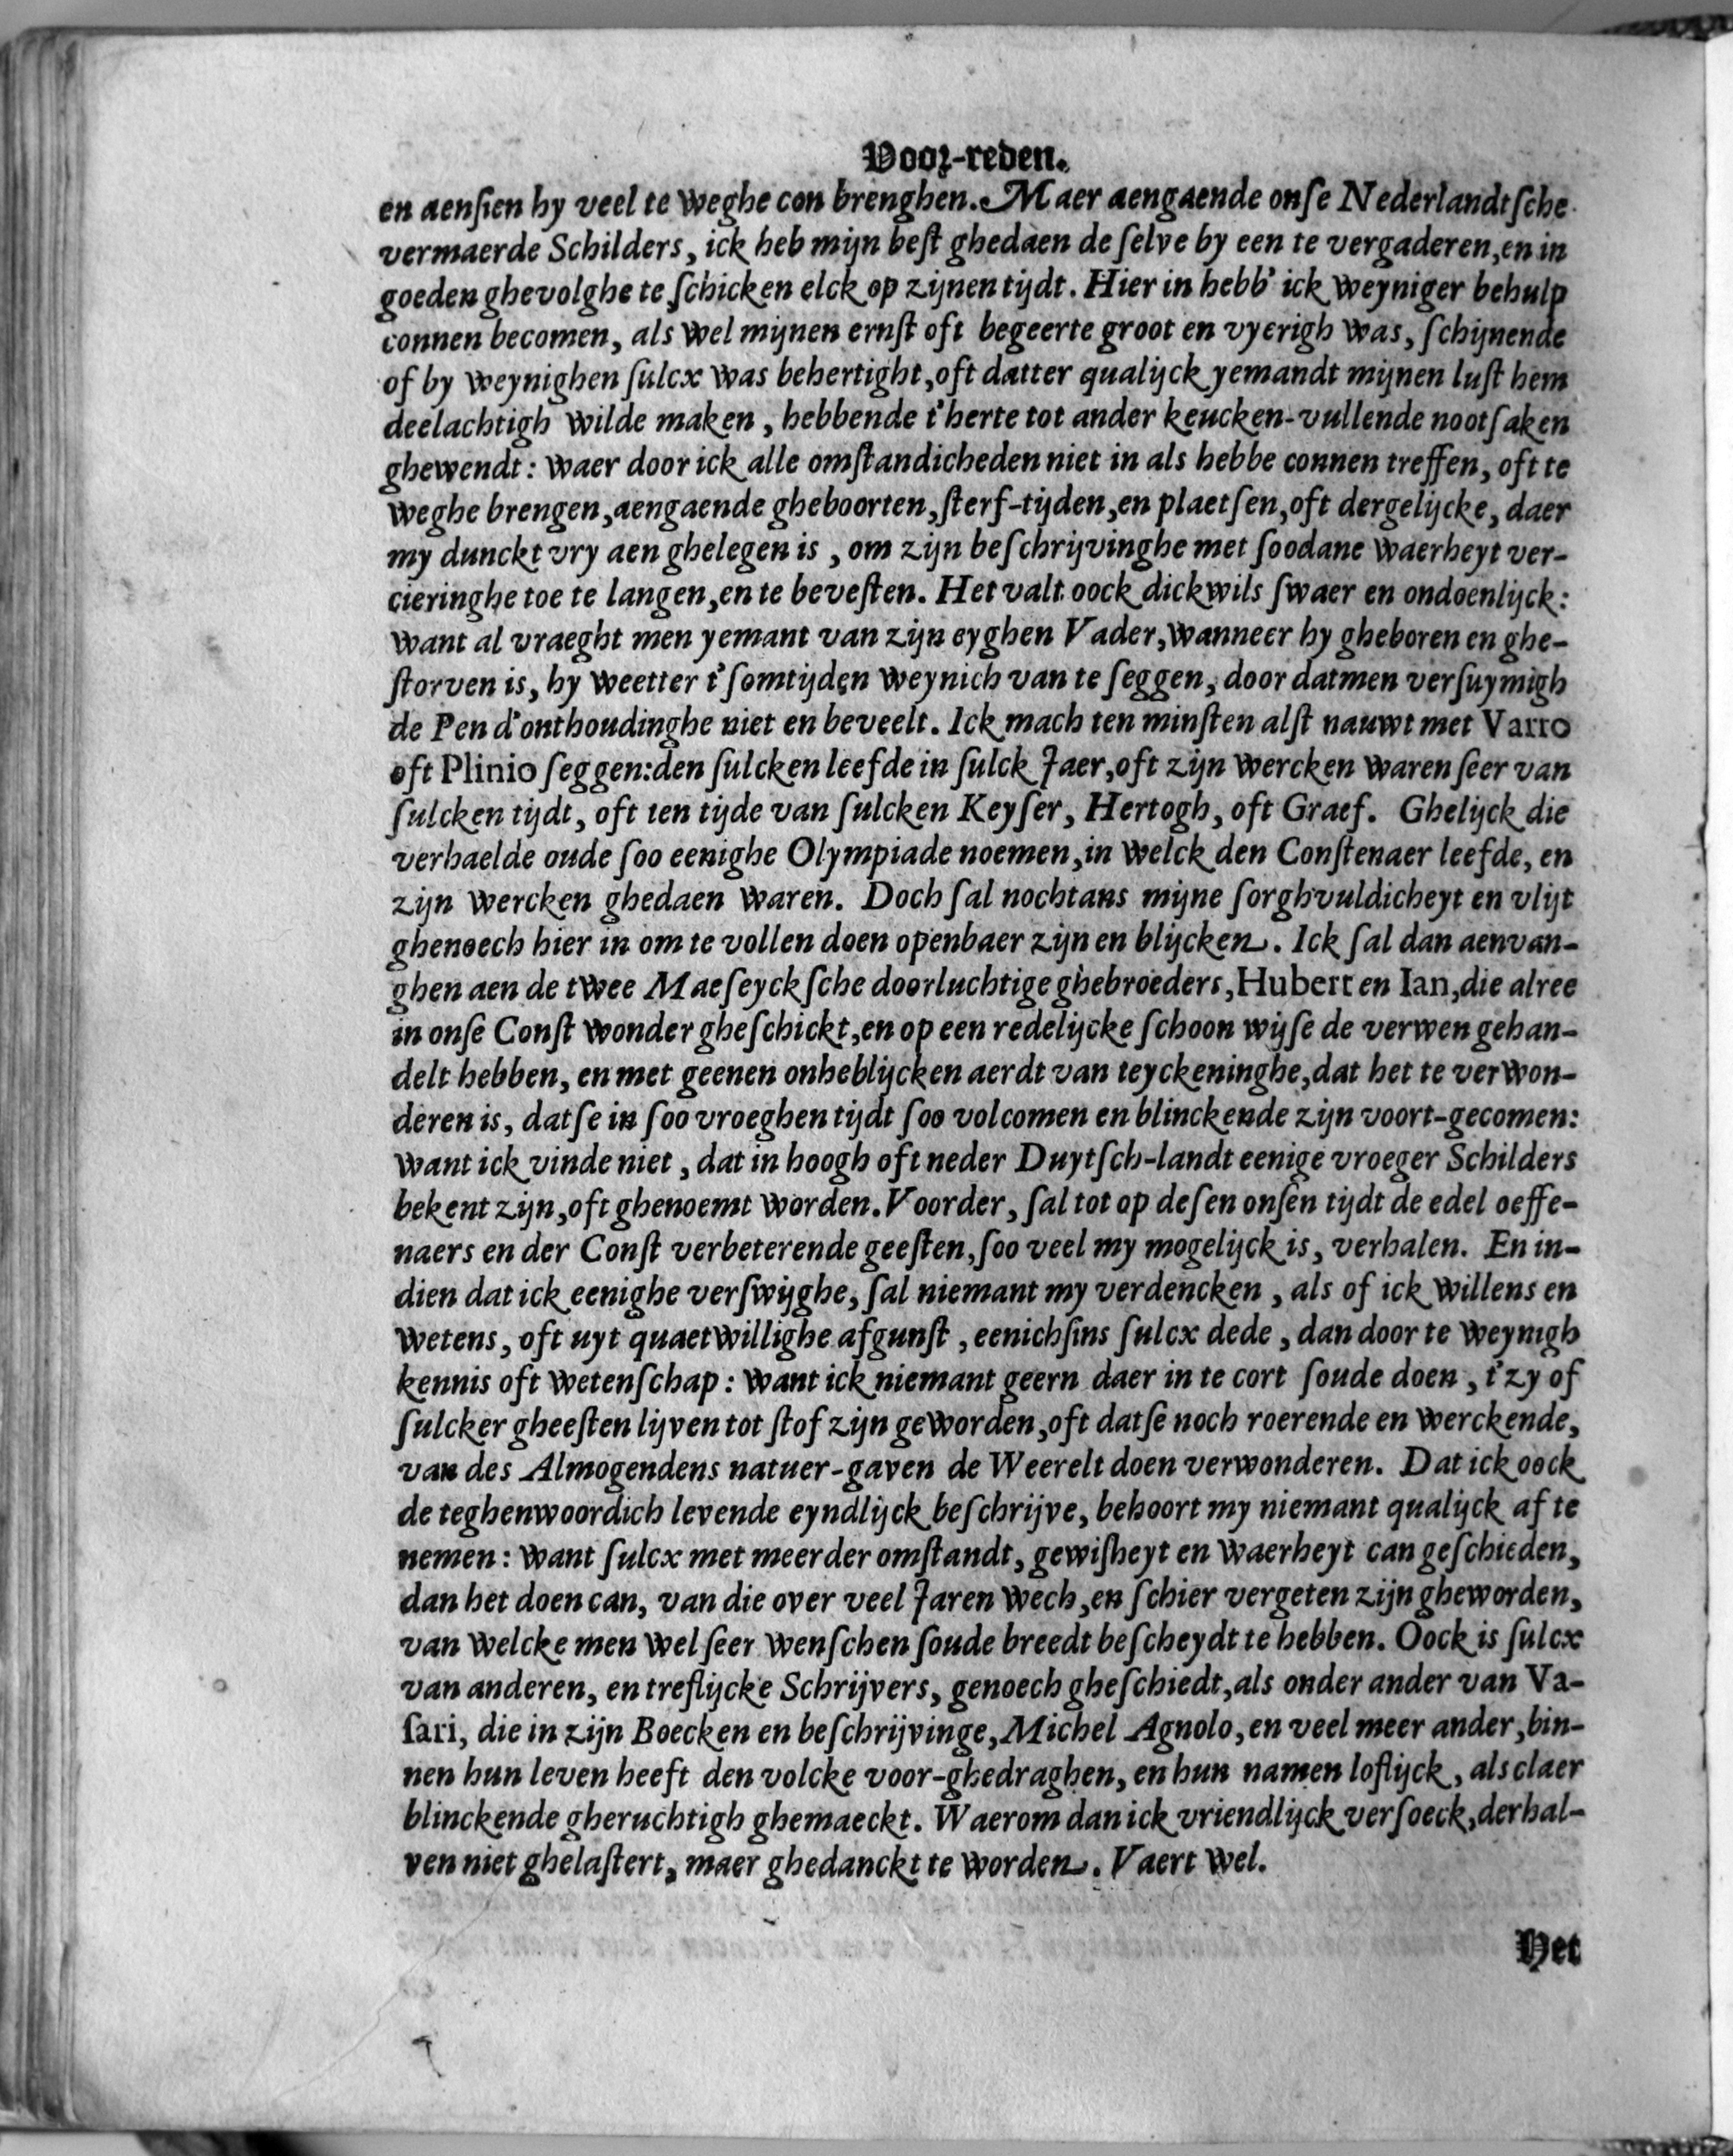 Voor-reden.
en aenſien hy veel te weghe con brenghen. Maer aengaende onſe Nederlandtſche
vermaerde Schilders, ick heb mijn beſt ghedaen de ſelve by een te vergaderen, en in
goeden ghevolghe te ſchicken elck op zijnen tijdt. Hier in hebb' ick weyniger behulp
connen becomen, als wel mijnen ernſt oft begeerte groot en vyerigh was, ſchijnende
of by weynighen ſulcx was behertight, oft datter qualijck yemandt mijnen luſt hem
deelachtigh wilde maken, hebbende t'herte tot ander keucken-vullende nootſaken
ghewendt: waer door ick alle omſtandicheden niet in als hebbe connen treffen, oft te
weghe brengen, aengaende gheboorten, ſterf-tijden, en plaetſen, oft dergelijcke, daer
my dunckt vry aen ghelegen is, om zijn beſchrijvinghe met ſoodane waerheyt ver-
cieringhe toe te langen, en te beveſten. Het valt oock dickwils ſwaer en ondoenlijck:
want al vraeght men yemant van zijn eyghen Vader, wanneer hy gheboren en ghe-
ſtorven is, hy weetter t'ſomtijden weynich van te ſeggen, door datmen verſuymigh
de Pen d'onthoudinghe niet en beveelt. Ick mach ten minſten alſt nauwt met Varro
oft Plinio ſeggen: den ſulcken leefde in ſulck Jaer, oft zijn wercken waren ſeer van
ſulcken tijdt, oft ten tijde van ſulcken Keyſer, Hertogh, oft Graef. Ghelijck die
verhaelde oude ſoo eenighe Olympiade noemen, in welck den Conſtenaer leefde, en
zijn wercken ghedaen waren. Doch ſal nochtans mijne ſorghvuldicheyt en vlijt
ghenoech hier in om te vollen doen openbaer zijn en blijcken. Ick ſal dan aenvan-
ghen aen de twee Maeſeyckſche doorluchtige ghebroeders, Hubert en Ian, die alree
in onſe Conſt wonder gheſchickt, en op een redelijcke ſchoon wijſe de verwen gehan-
delt hebben, en met geenen onheblijcken aerdt van teyckeninghe, dat het te verwon-
deren is, datſe in ſoo vroeghen tijdt ſoo volcomen en blinckende zijn voort-gecomen:
want ick vinde niet, dat in hoogh oft neder Duytſch-landt eenige vroeger Schilders
bekent zijn, oft ghenoemt worden. Voorder, ſal tot op deſen onſen tijdt de edel oeffe-
naers en der Conſt verbeterende geeſten, ſoo veel my mogelijck is, verhalen. En in-
dien dat ick eenighe verſwijghe, ſal niemant my verdencken, als of ick willens en
wetens, oft uyt quaetwillighe afgunſt, eenichſins ſulcx dede, dan door te weynigh
kennis oft wetenſchap: want ick niemant geern daer in te cort ſoude doen, t'zy of
ſulcker gheeſten lijven tot ſtof zijn geworden, oft datſe noch roerende en werckende,
van des Almogendens natuer-gaven de Weerelt doen verwonderen. Dat ick oock
de teghenwoordich levende eyndlijck beſchrijve, behoort my niemant qualijck af te
nemen: want ſulcx met meerder omſtandt, gewiſheyt en waerheyt can geſchieden,
dan het doen can, van die over veel Jaren wech, en ſchier vergeten zijn gheworden,
van welcke men wel ſeer wenſchen ſoude breedt beſcheydt te hebben. Oock is ſulcx
van anderen, en treflijcke Schrijvers, genoech gheſchiedt, als onder ander van Va-
ſari, die in zijn Boecken en beſchrijvinge, Michel Agnolo, en veel meer ander, bin-
nen hun leven heeft den volcke voor-ghedraghen, en hun namen loflijck, als claer
blinckende gheruchtigh ghemaeckt. Waerom dan ick vriendlijck verſoeck, derhal-
ven niet ghelaſtert, maer ghedanckt te worden. Vaert wel.
Het